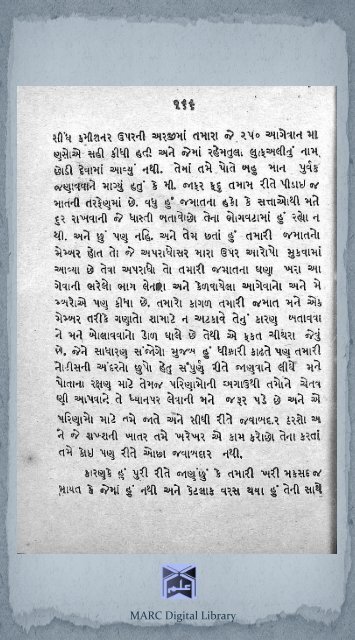 ૧૧૬
સીંધ કમીશનર ઉપરની અરજીમાં તમારા જે ૨૫૦ આગેવાન મા
ણસોએ સહી કીધી હતી અને જેમાં રહેમતુલા લુતફઅલીનું નામ
છોડી દેવામાં આવ્યું નથી. તેમાં તમે પોતે બહુ માન પુર્વક
જણાવવાને માગ્યું હતું કે મી. જાફર ફદુ તમામ રીતે પીડાઈ જ
માતની તરફેણમાં છે. વધુ હું જમાતના હકો કે સત્તાઓથી મને
દુર રાખવાની જે ધાસ્તી બતાવોછો તેના ભોગવટામાં હું રહ્યો ન
થી. અને છું પણ નહિ. અને તેમ છતાં હું તમારી જમાતનો
મેમ્બર હોત તો જે અપરાધોસર મારા ઉપર આરોપો મુકવામાં
આવ્યા છે તેવા અપરાધો તો તમારી જમાતના ઘણા ખરા આ
ગેવાની ભરેલો ભાગ લેનારા અને કેળવાયેલા આગેવાનો અને મે
મ્બરોએ પણ કીધા છે. તમારો કાગળ તમારી જમાત મને એક
મેમ્બર તરીકે ગણાતો શામાટે ન અટકાવે તેનું કારણ બતાવવા
ને મને બોલાવવાનો ડોળ ધાલે છે તેથી એ ફકત ચીથરા જેવું
છે, જેને સાધારણ સંજોગો મુજબ હું ધીક્કારી કાઢતે પણ તમારી
નોટીસની અંદરનો છુપો હેતુ સંપુર્ણ રીતે જાણુવાને લીધે મને
પોતાના રક્ષણ માટે તેમજ પરિણામોની અગાઉથી તમોને ચેતવ
ણી આપવાને તે ધ્યાનપર લેવાની મને જરૂર પડે છે અને એ
પરિણામો માટે તમે જાતે અને સીધી રીતે જવાબદાર ઠરશો અ
ને જે શખ્સની ખાતર તમે ખરેખર એ કામ કરોછો તેના કરતાં
તમે કોઇ પણ રીતે ઓછા જવાબદાર નથી.
કારણકે હું પુરી રીતે જાણું છું કે તમારી ખરી મકસદ જ
માયત કે જેમાં હું નથી અને કેટલાક વરસ થયા હું તેની સાથે
علم
MARC Digital Library